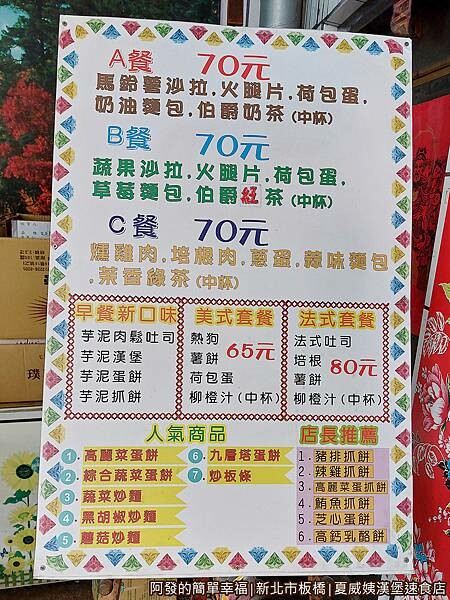 A餐 70元
馬鈴薯沙拉,火腿片,荷包蛋,
奶油麵包,伯爵奶茶(中杯)
B餐 70元
蔬果沙拉,火腿片,荷包蛋,
草莓麵包,伯爵紅茶(中杯)
C餐 70元
燻雞肉,培根肉,蔥蛋,蒜味麵包
,茉香綠茶(中杯)
早餐新口味
芋泥肉鬆吐司
芋泥漢堡
芋泥蛋餅
芋泥抓餅
美式套餐
熱狗
薯餅
荷包蛋
柳橙汁(中杯)
65元
法式套餐
法式吐司
培根
薯餅
柳橙汁(中杯)
80元
人氣商品
1.高麗菜蛋餅
2.綜合蔬菜蛋餅
3.蔬菜炒麵
4.黑胡椒炒麵
5.蘑菇炒麵
6.九層塔蛋餅
7.炒板條
店長推薦
1.豬排抓餅
2.辣雞抓餅
3.高麗菜蛋抓餅
4.鮪魚抓餅
5.芝心蛋餅
6.高鈣乳酪餅
璞
阿發的簡單幸福|新北市板橋|夏威姨漢堡速食店